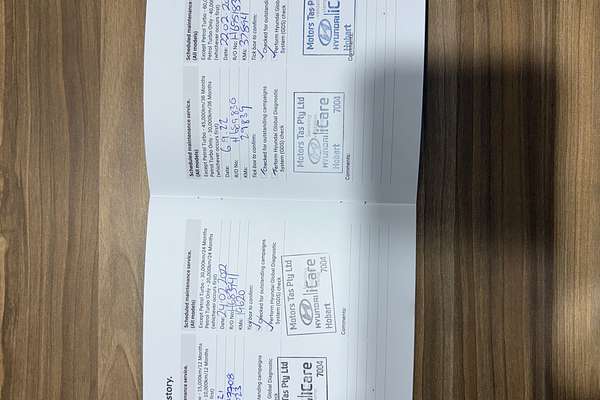 story.
nance service.
- 15,000km/12 Months
- 10,000km/12 Months
tstanding campaigns
Global Diagnostic
Tas Pty Ltd
iCare
7004
Scheduled maintenance service.
(All models)
Except Petrol Turbo - 30,000km/24 Months
Petrol Turbo Only - 20,000km/24 Months
(whichever occurs first)
Date: 24/02/2022
R/O No:
KMs: 19620
Tick box to confirm:
Checked for outstanding campaigns
Perform Hyundai Global Diagnostic
System (GDS) check
Motors Tas Pty Ltd
HYUNDAI iCare
Hobart 7004
Comments:
Scheduled maintenance service.
(All models)
Except Petrol Turbo - 45,000km/36 Months
Petrol Turbo Only - 30,000km/36 Months
(whichever occurs first)
Date: 6.9.22
R/O No:
KMs: 29839
Tick box to confirm:
Checked for outstanding campaigns
Perform Hyundai Global Diagnostic
System (GDS) check
Motors Tas Pty Ltd
HYUNDAI iCare
Hobart 7004
Comments:
Scheduled maintenance
(All models)
Except Petrol Turbo - 60
Petrol Turbo Only - 40,0
(whichever occurs first)
Date:
R/O No:
KMs: 37894
Tick box to confirm:
Checked for outstandin
Perform Hyundai Globa
System (GDS) check
Motors Tas P
HYUNDAI iC
Hobart
Comments: